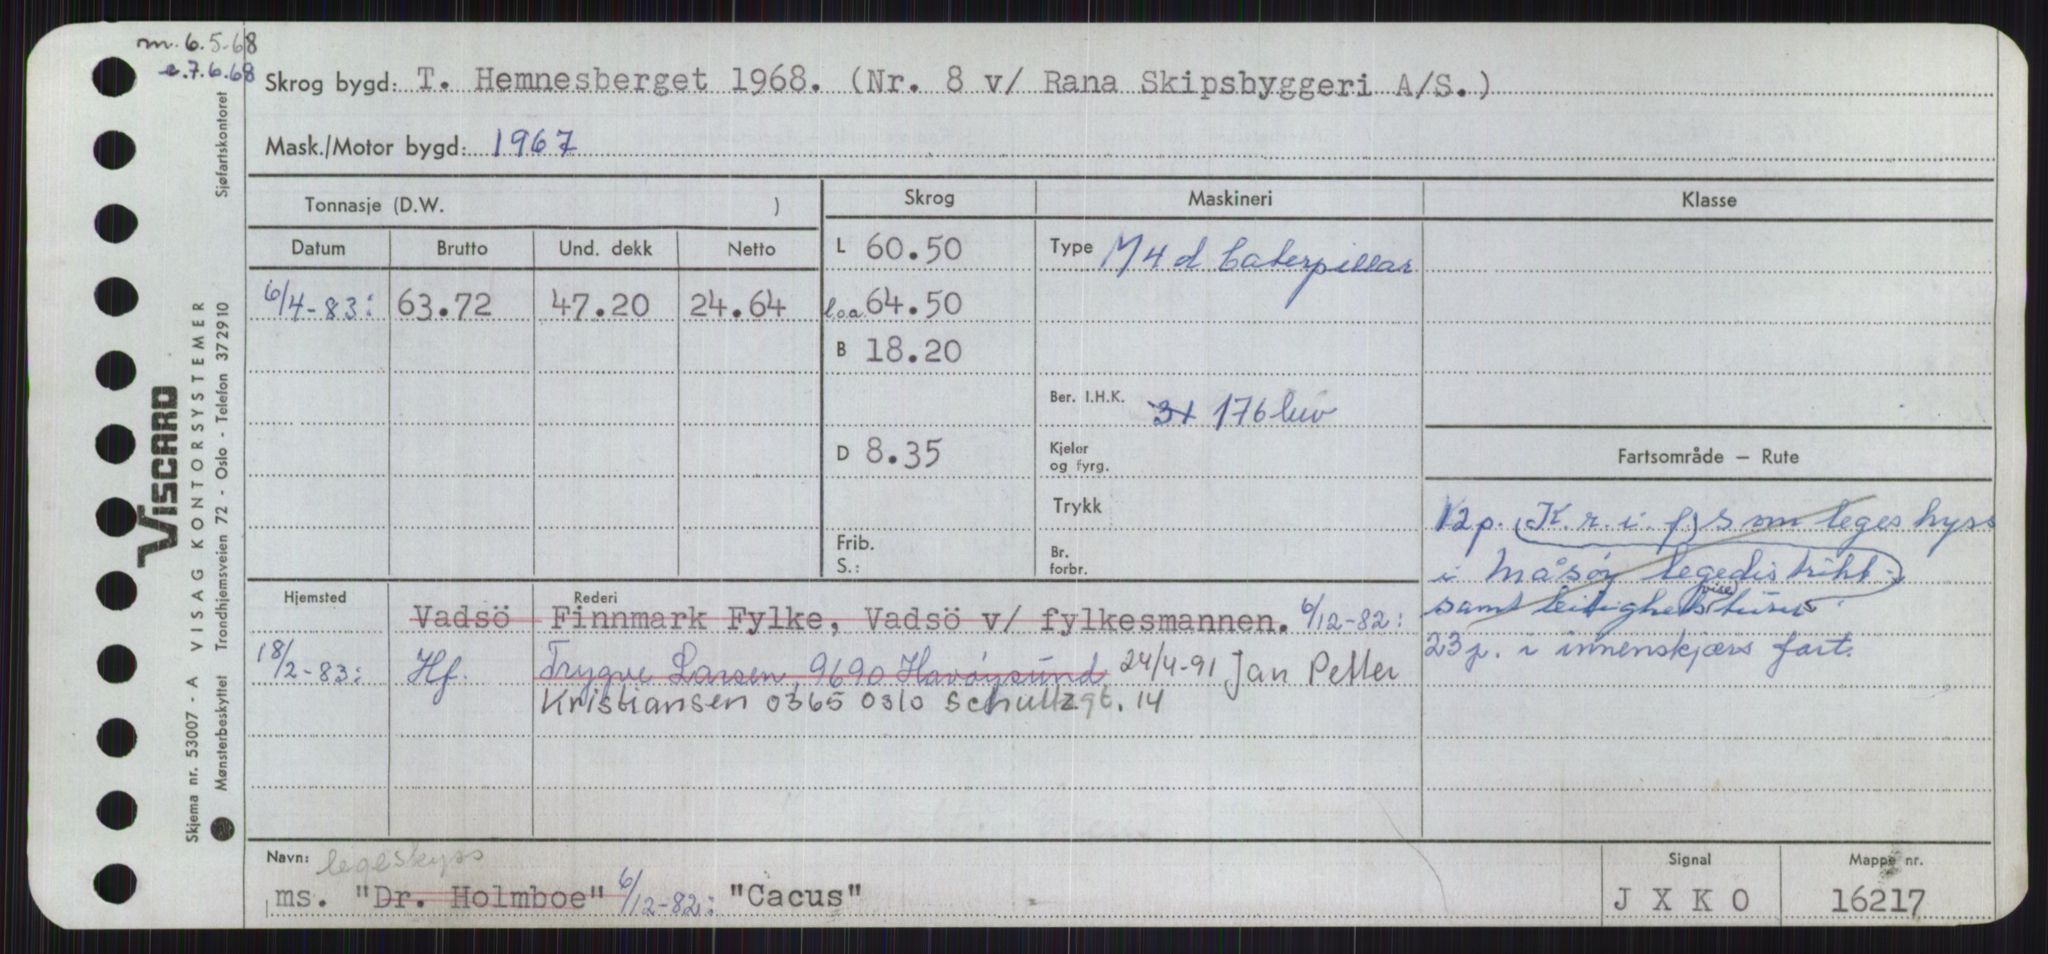 m. 6.5.68
e. 7.6.68
Skrog bygd: T. Hemnesberget 1968. (Nr. 8 v/ Rana Skipsbyggeri A/S.)
Mask./Motor bygd: 1967
Tonnasje (D.W. ) Skrog Maskineri Klasse
Datum Brutto Und. dekk Netto L 60.50 Type M 4 d Caterpillar
6/4-83: 63.72 47.20 24.64 l.o.a 64.50
B 18.20
Ber. I.H.K. 3x 176 luv
D 8.35 Kjeler og fyrg. Fartsområde — Rute
Trykk
Frib. S.: Br. forbr.
12 p. (K.r.i.f) som legeskyss
i Måsøy legedistrikt -
samt leilighetsvise turer.
23 p. i innenskjærs fart.
Hjemsted Rederi
Vadsö Finnmark Fylke, Vadsö v/ fylkesmannen. 6/12-82:
18/2-83: Hf. Trygve Larsen, 9690 Havöysund 24/4-91 Jan Petter
Kristiansen 0365 Oslo Schultzgt. 14
Navn: legeskyss Signal Mappe nr.
ms. "Dr. Holmboe" 6/12-82: "Cacus" J X K O 16217
VISCARD
Skjema nr. 53007 - A VISAG KONTORSYSTEMER
Mønsterbeskyttet Trondhjemsveien 72 - Oslo - Telefon 372910 Sjøfartskontoret